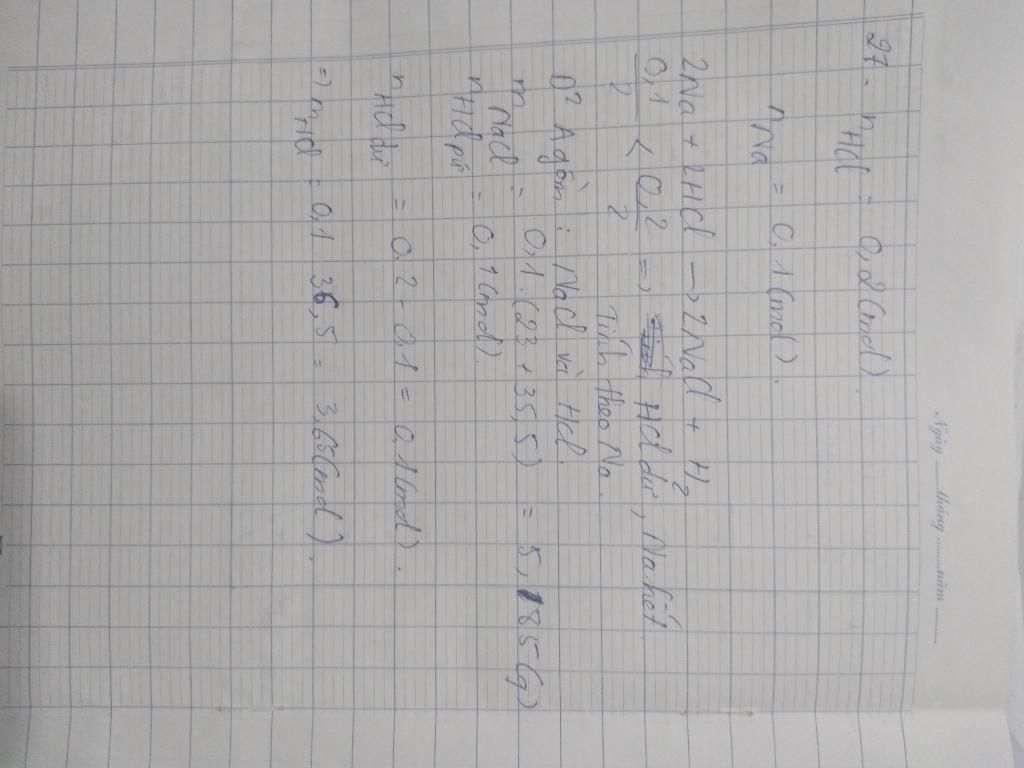 Ngày ........tháng ........năm ........
21. nHCl = 0,2(mol).
nNa = 0,1(mol).
2Na + 2HCl → 2NaCl + H2
0,1/2 < 0,2/2 => HCl dư, Na hết.
Tính theo Na.
D² A gồm : NaCl và HCl.
mNaCl = 0,1.(23 + 35,5) = 5,85(g)
nHCl pứ = 0,1(mol).
nHCl dư = 0,2 - 0,1 = 0,1(mol).
=> mHCl = 0,1. 36,5 = 3,65(mol).